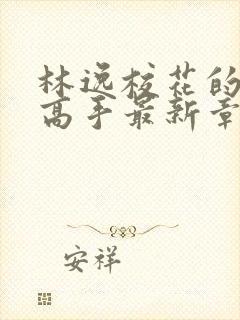 林逸校花的
高手最新章
安祥